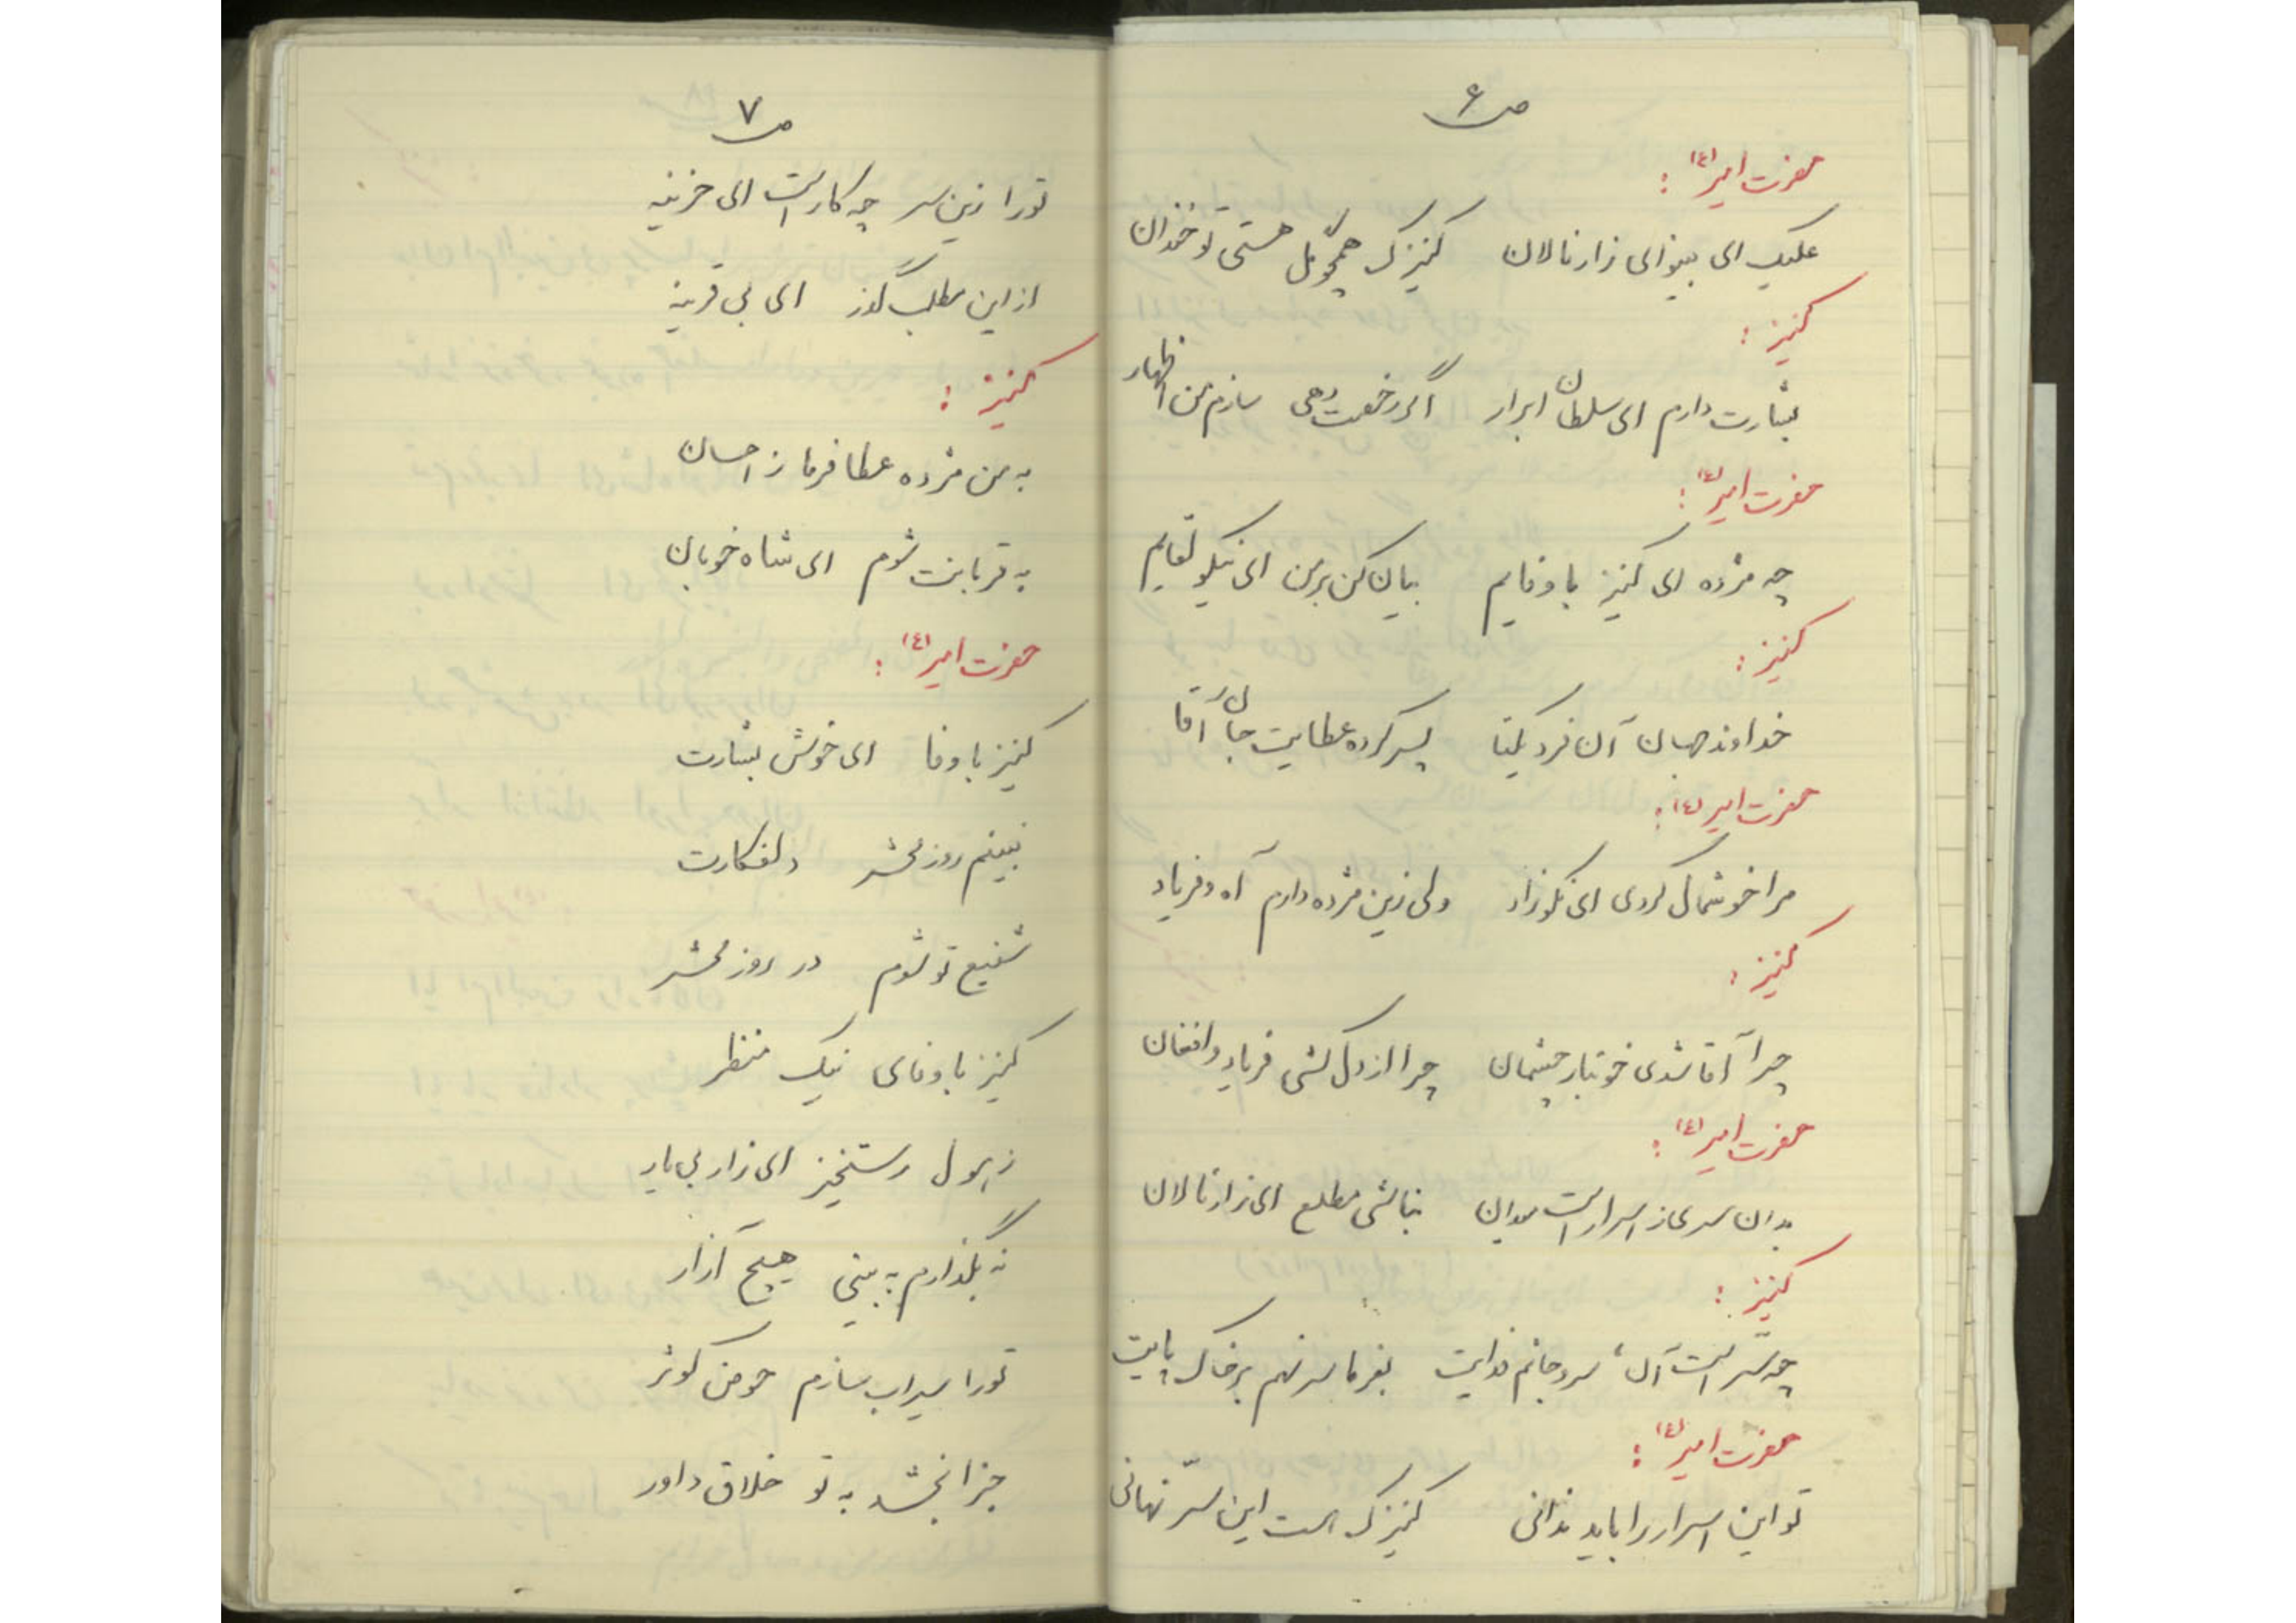 ص ۶
حضرت امیر (ع) :
علیک ای بینوای زار نالان کنیزک همچو گل هستی تو خندان
کنیز :
بشارت دارم ای سلطان ابرار اگر رخصت دهی سازم من اظهار
حضرت امیر (ع) :
چه مژده ای کنیز با وفایم بیان کن بر من ای نیکو لقایم
کنیز :
خداوند جهان آن فرد یکتا پسر کرده عطایت جان آقا
حضرت امیر (ع) :
مرا خوشحال کردی ای نکوزاد ولی زین مژده دارم آه و فریاد
کنیز :
چرا آقا شدی خونبار چشمان چرا از دل کشی فریاد و افغان
حضرت امیر (ع) :
بدان سری ز اسرار است میدان نباشی مطلع ای زار نالان
کنیز :
چه سّر است آن، سر و جانم فدایت بفرما سر نهم بر خاک پایت
حضرت امیر (ع) :
تو این اسرار را باید ندانی کنیزک هست این سّر نهانی
ص ۷
تورا زین سر چه کار است ای حزینه
از این مطلب گذر ای بی قرینه
کنیز :
به من مژده عطا فرما ز احسان
به قربانت شوم ای شاه خوبان
حضرت امیر (ع) :
کنیز با وفا ای خوش بشارت
نبینم روز محشر دلفکارت
شفیع تو شوم در روز محشر
کنیز با وفای نیک منظر
ز هول رستخیز ای زار بی یار
نه بگذارم به بینی هیچ آزار
تورا سیراب سازم حوض کوثر
جزا بخشد به تو خلاق داور